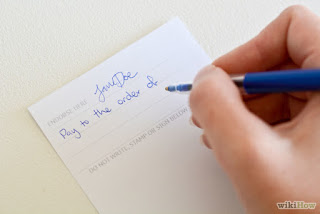 Jane Doe
ENDORSE HERE
Pay to the order of
DO NOT WRITE, STAMP OR SIGN BELOW
wikiHow